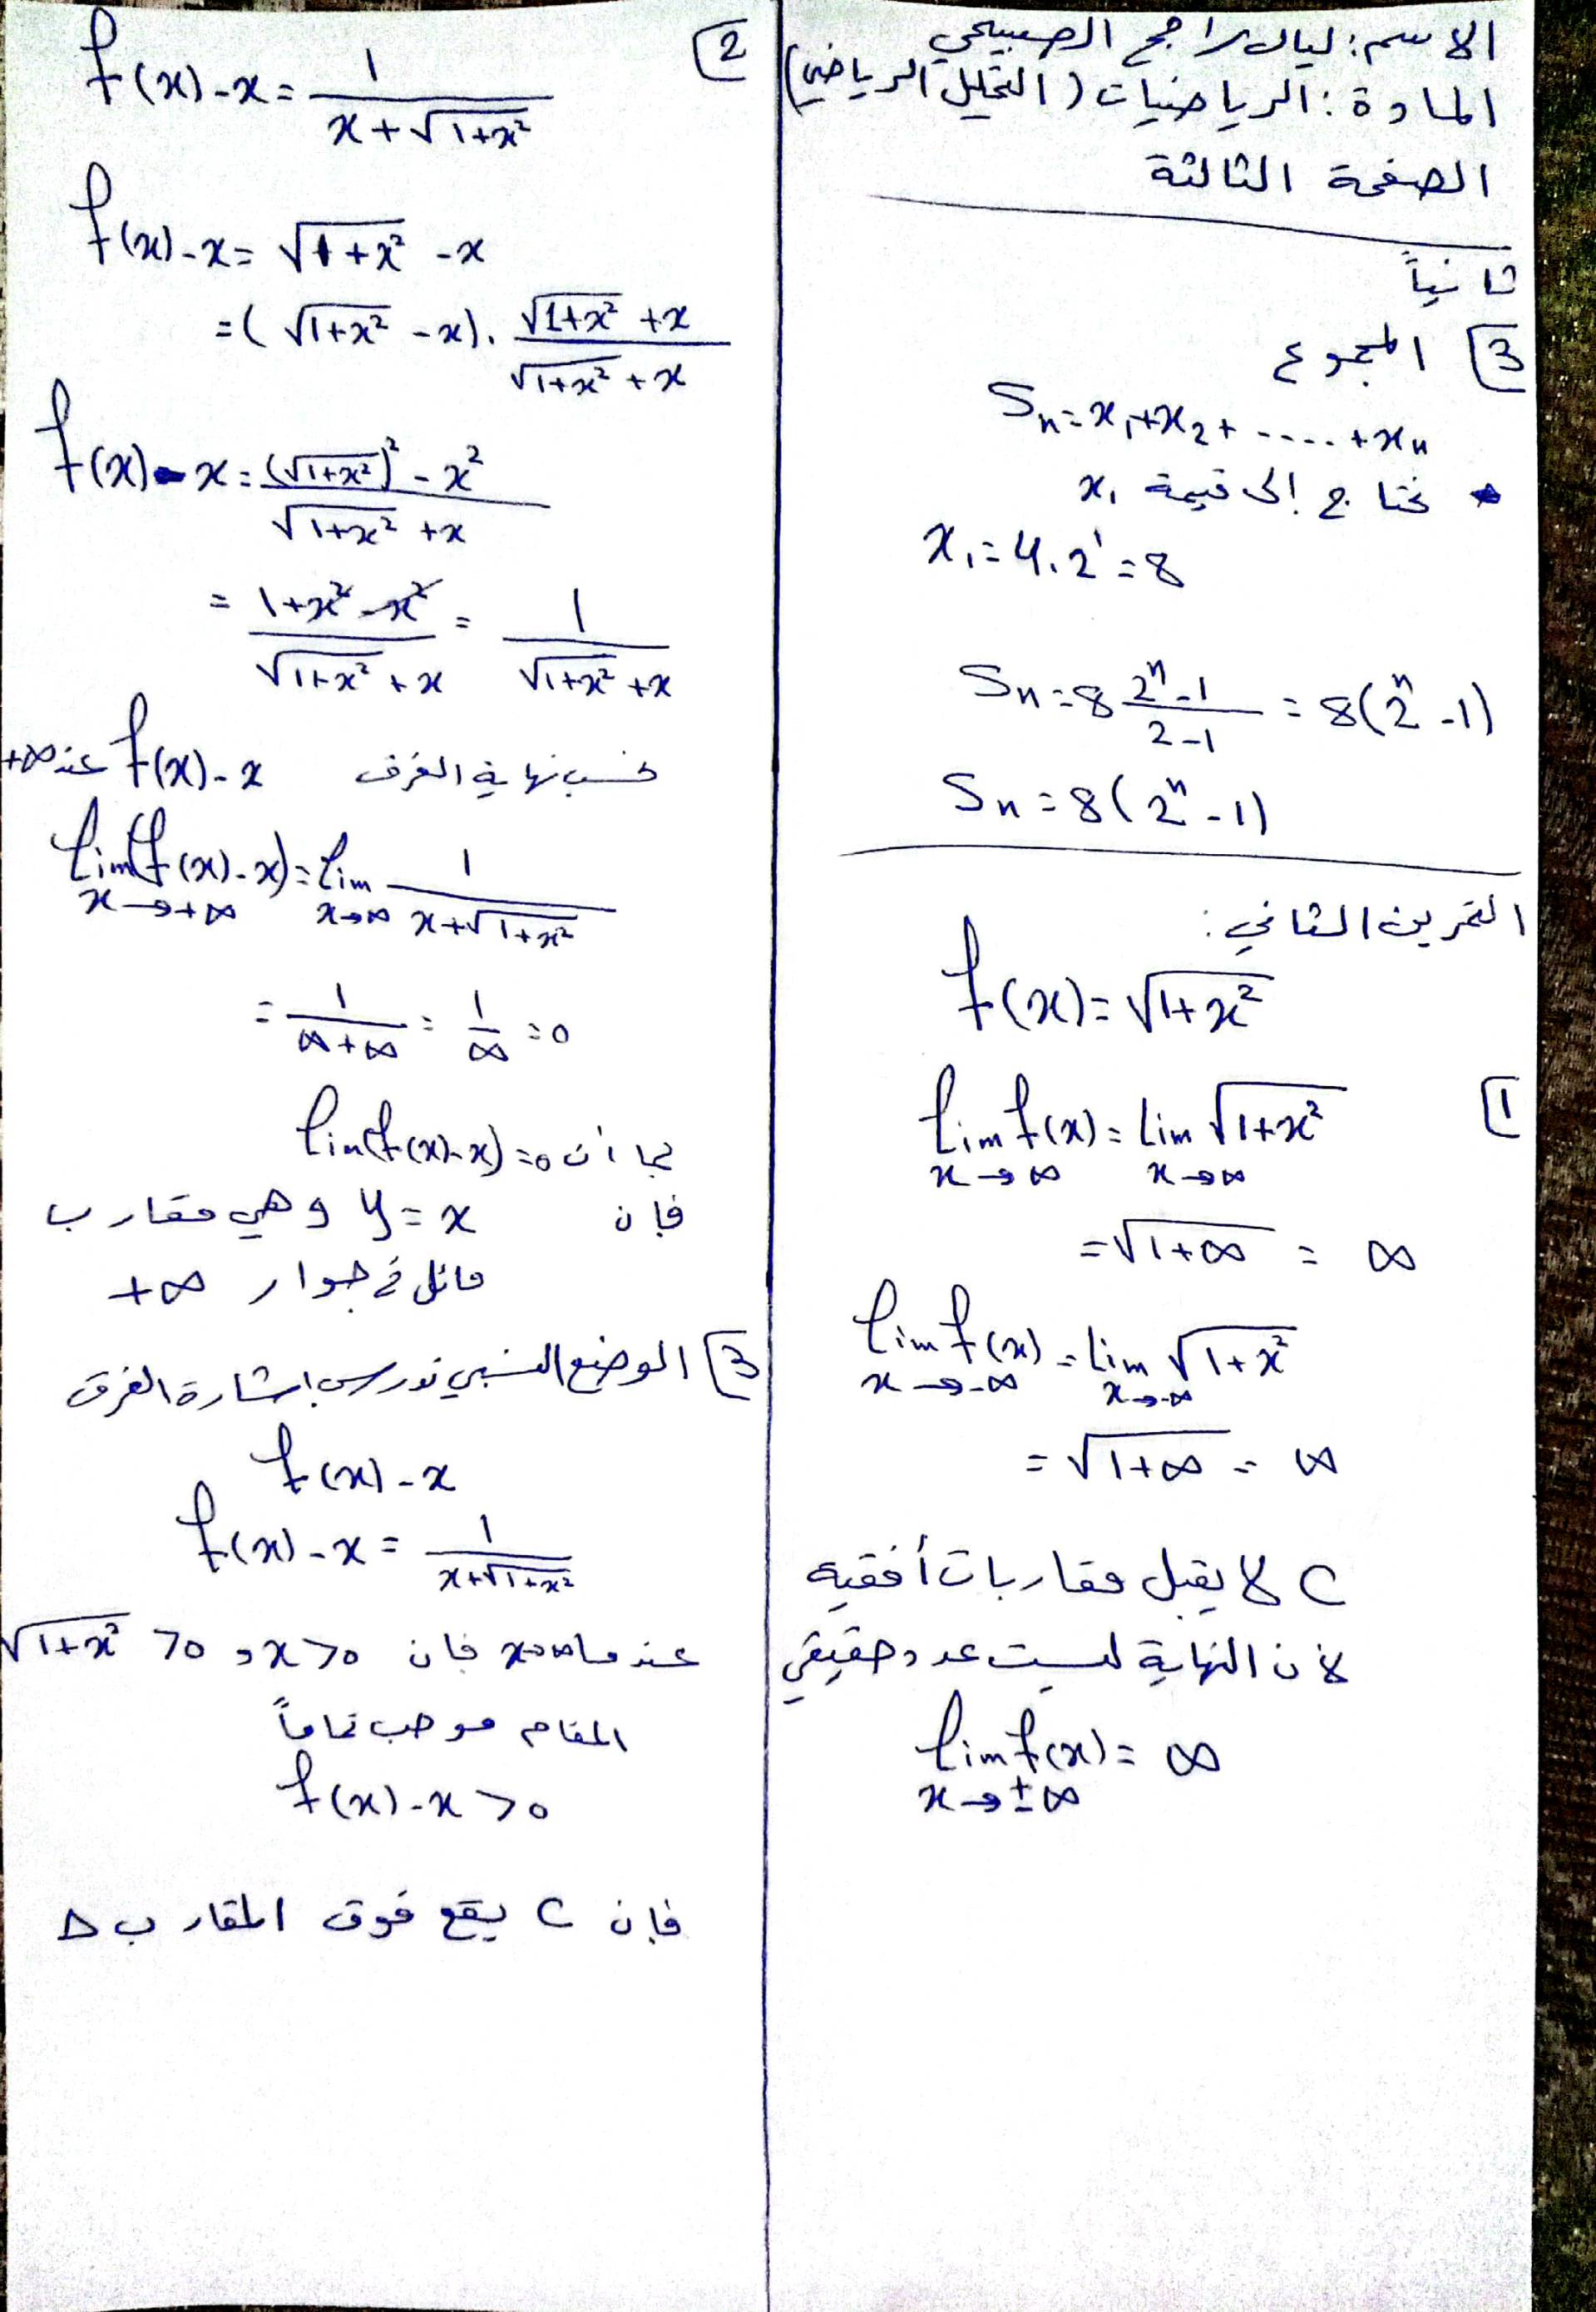 الاسم: ليال راجح الصبيحي
المادة: الرياضيات (التحليل الرياضي)
الصفحة الثالثة
ثانياً
3] المجموع
Sn = x₁+x₂+ ..... +xn
نحتاج إلى قيمة x₁
x₁ = 4.2¹ = 8
Sn = 8 (2ⁿ-1)/(2-1) = 8(2ⁿ-1)
Sn = 8(2ⁿ-1)
التمرين الثاني:
f(x) = √(1+x²)
1] lim f(x) = lim √(1+x²)
x→∞ x→∞
= √(1+∞) = ∞
lim f(x) = lim √(1+x²)
x→-∞ x→-∞
= √(1+∞) = ∞
C لا يقبل مقاربات أفقيه
لأن النهاية ليست عدد حقيقي
lim f(x) = ∞
x→±∞
2] f(x)-x = 1/(x+√(1+x²))
f(x)-x = √(1+x²) -x
= (√(1+x²) -x). (√(1+x²) +x)/(√(1+x²) +x)
f(x)-x = ((√(1+x²))² - x²)/(√(1+x²) +x)
= (1+x²-x²)/(√(1+x²) +x) = 1/(√(1+x²) +x)
نحسب نهاية الفرق f(x)-x عند +∞
lim(f(x)-x) = lim 1/(x+√(1+x²))
x→+∞ x→∞
= 1/(∞+∞) = 1/∞ = 0
بما أن lim(f(x)-x) = 0
فإن y = x وهي مقارب
مائل في جوار +∞
3] الوضع النسبي ندرس اشارة الفرق
f(x)-x
f(x)-x = 1/(x+√(1+x²))
عندما x→∞ فان x>0 و √(1+x²) >0
المقام موجب تماماً
f(x)-x >0
فإن C يقع فوق المقارب Δ